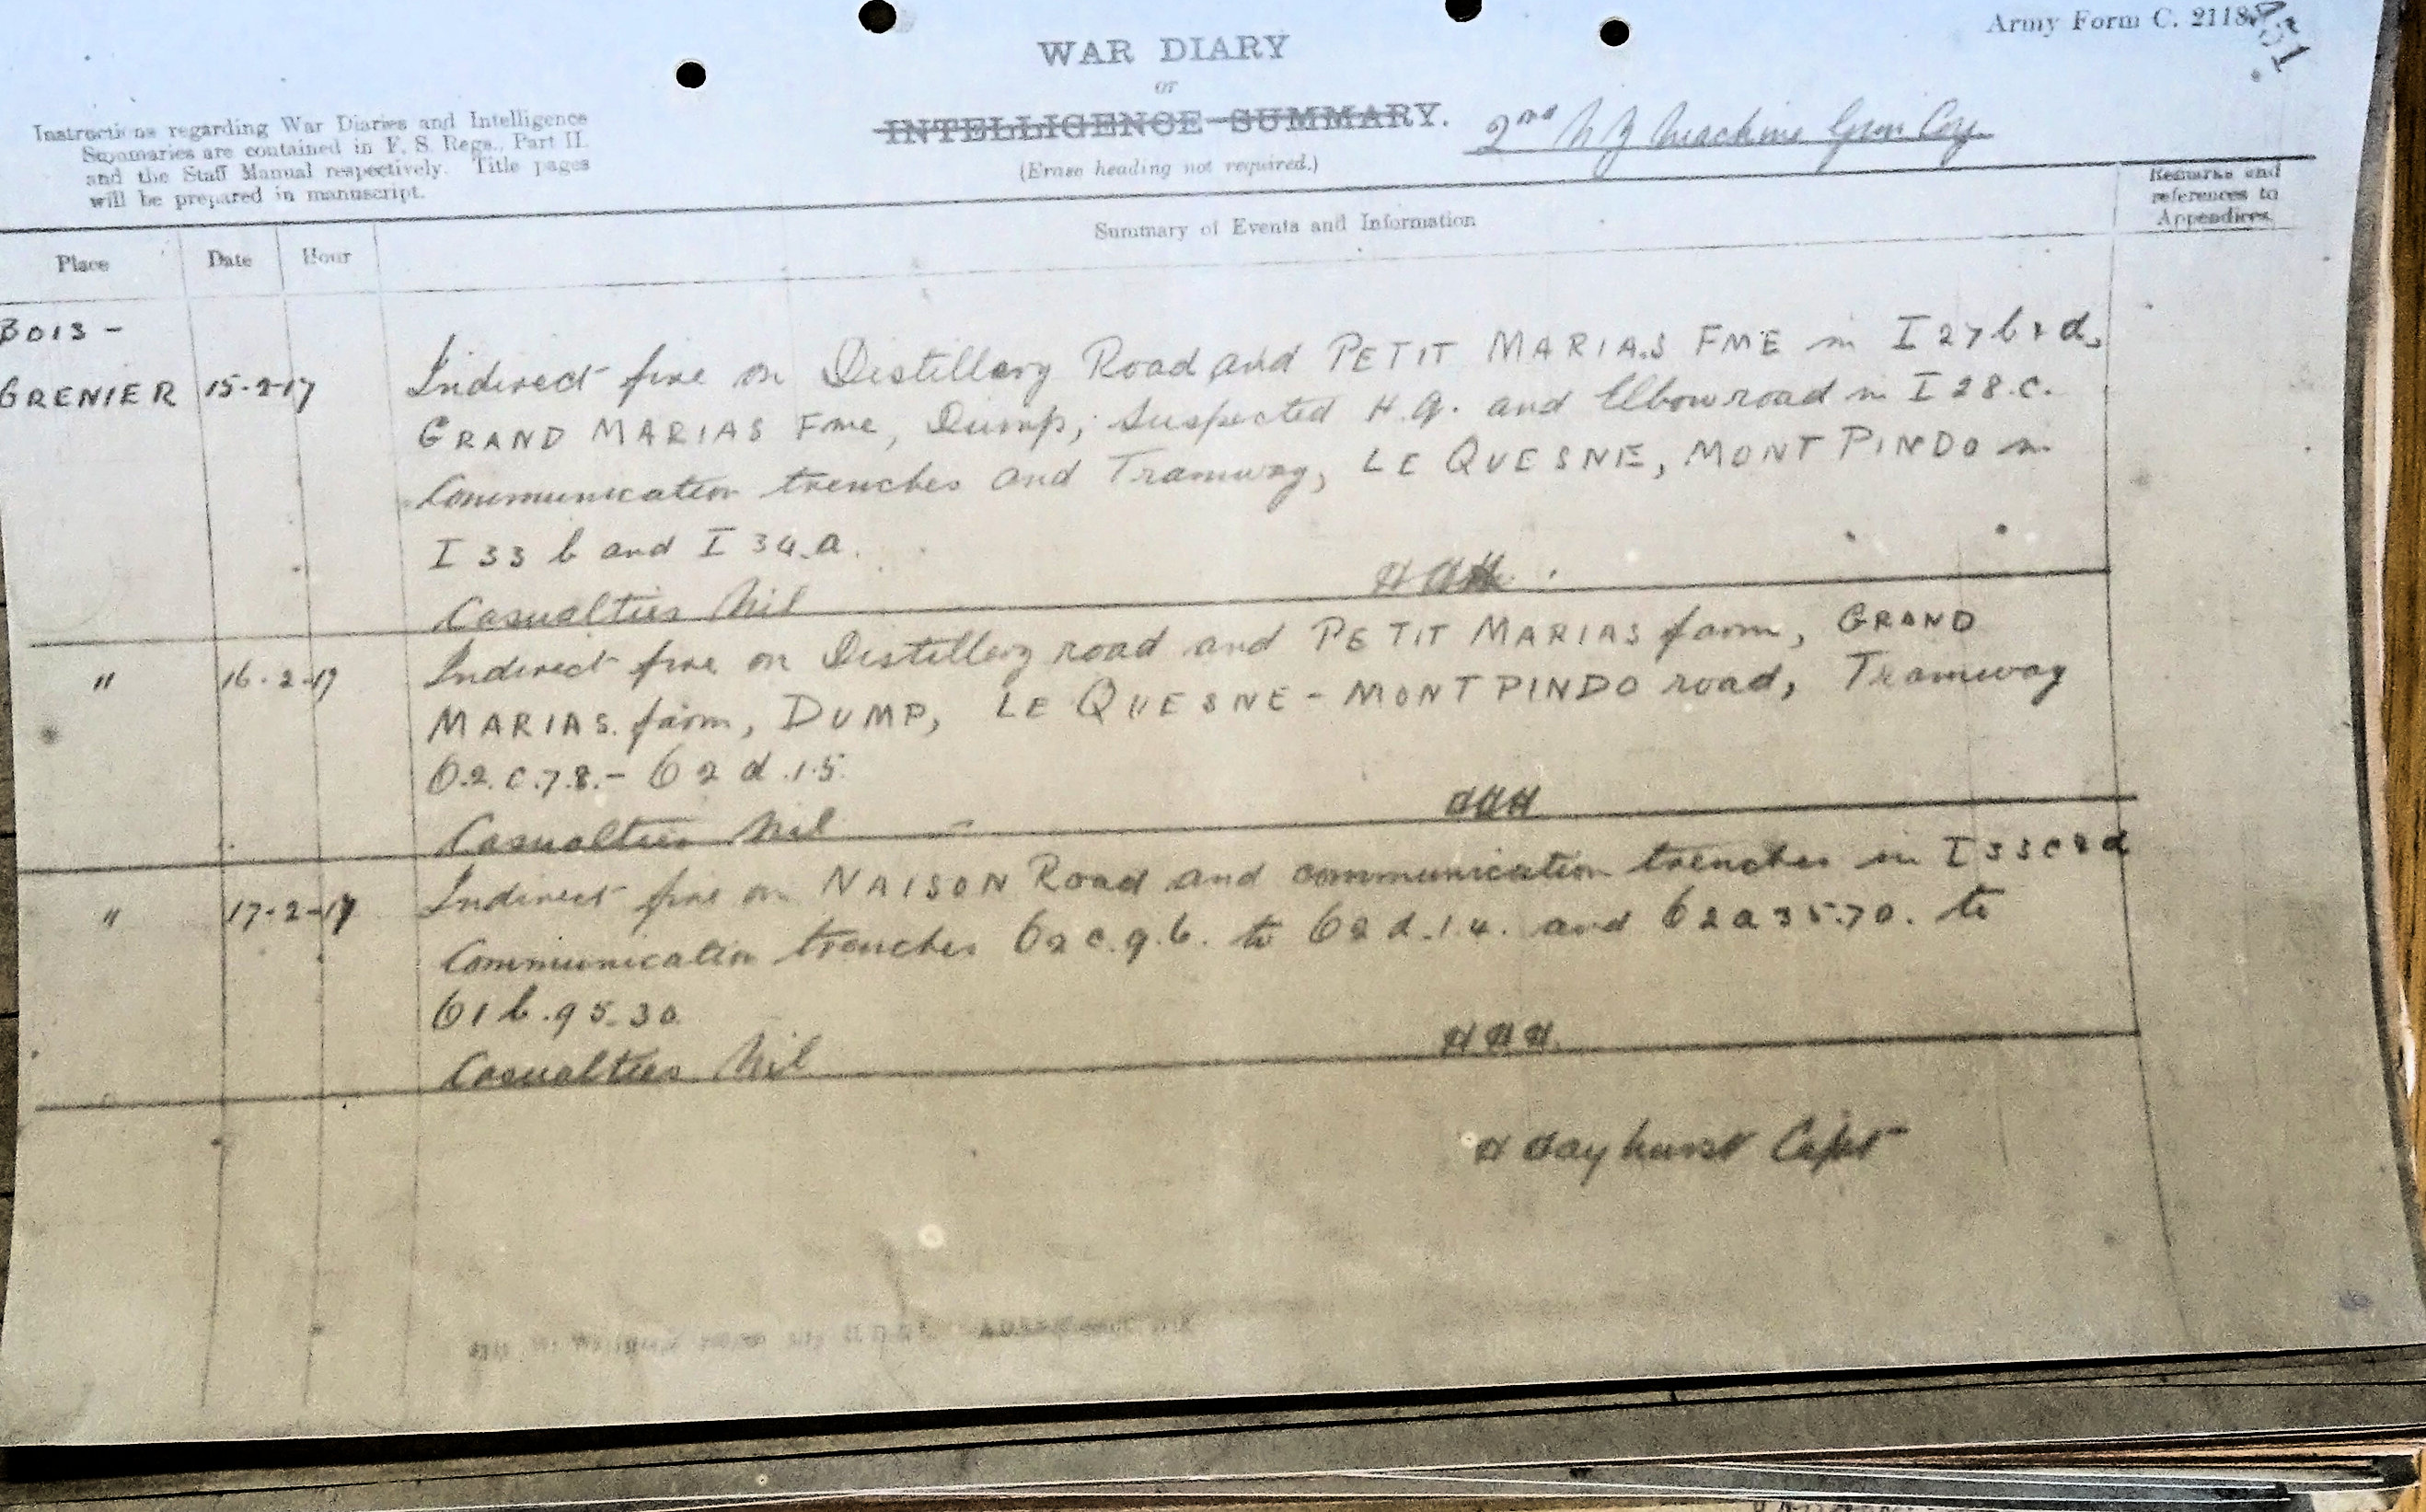 Army Form C. 2118.
WAR DIARY
or
INTELLIGENCE SUMMARY.
(Erase heading not required.)
2nd N Z Machine Gun Coy
Instructions regarding War Diaries and Intelligence
Summaries are contained in F. S. Regs., Part II.
and the Staff Manual respectively. Title pages
will be prepared in manuscript.
Place Date Hour
Summary of Events and Information
Remarks and
references to
Appendices
BOIS -
GRENIER 15-2-17
Indirect fire on Distillery Road and PETIT MARIAS FME in I 27 b & d,
GRAND MARIAS Fme, Dump, Suspected H.Q. and Elbow road in I 28.c.
Communication trenches and Tramway, LE QUESNE, MONT PINDO in
I 33 b and I 34.a.
Casualties Nil
" 16-2-17
Indirect fire on Distillery road and PETIT MARIAS farm, GRAND
MARIAS. farm, DUMP, LE QUESNE - MONT PINDO road, Tramway
O.2.c.7.8. - O 2 d .1.5.
Casualties Nil HAH
" 17-2-17
Indirect fire on NAISON Road and communication trenches in I 33 c & d
Communication trenches O2 c.9.6. to O2 d.1.4. and O2 a 35.70. to
O1 b.95.30.
Casualties Nil
Hayhurst Capt